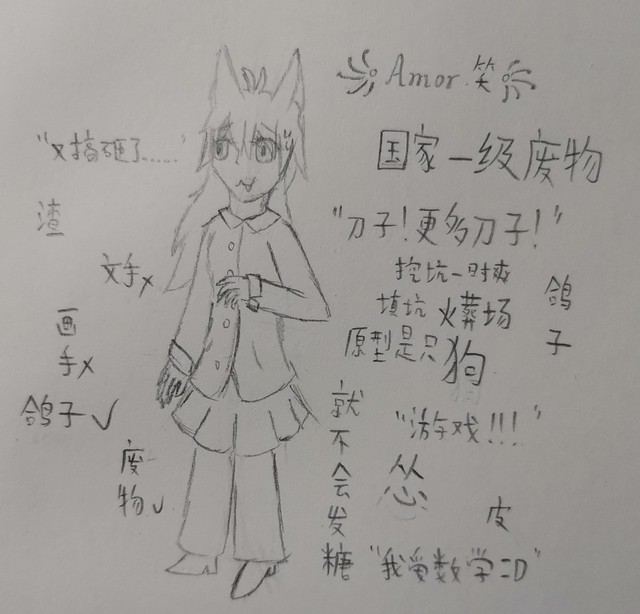 Amor.笑
"又搞砸了……"
国家一级废物
渣
"刀子！更多刀子！"
文手×
挖坑一时爽
填坑火葬场
鸽子
画手×
原型是只狗
鸽子✓
就不会发糖
"游戏!!!"
废物✓
怂
皮
"我爱数学=D"